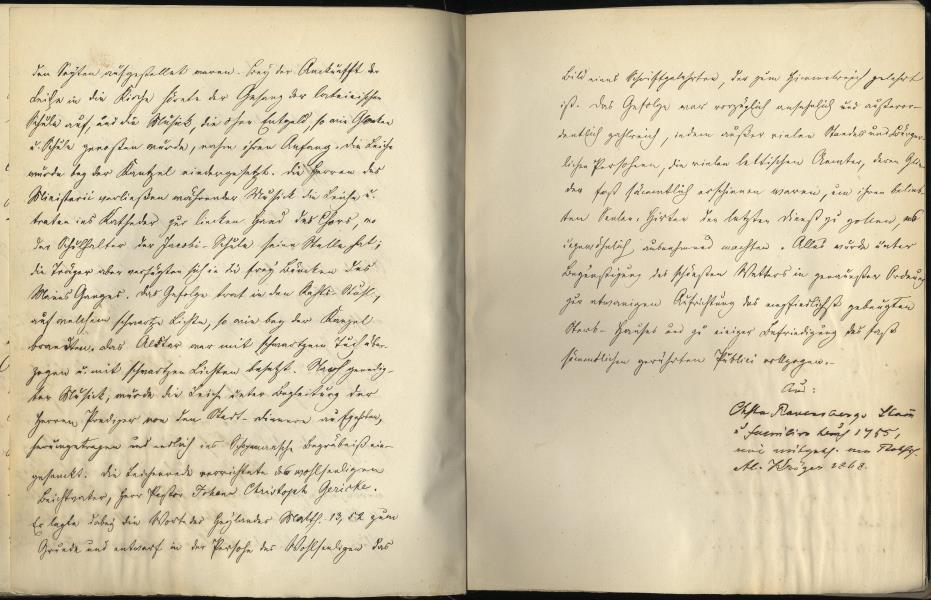 den Seyten aufgestellet waren. Bey der Ankunfft der
Leiche in die Kirche hörete der Gesang der lateinischen
Schule auf, und die Musick, die ohne Entgeld, so wie Glocken
u. Schule genossen wurde, nahm ihren Anfang. Die Leiche
wurde bey der Kantzel niedergesetzt. Die Herren des
Ministerii verließen währender Musick die Leiche u.
traten ins Katheder zur lincken Hand des Chors, wo
der Schulhalter der Jacobi-Schule seine Stelle hat;
die Träger aber verfügten sich in die Bäncken des
Ganges. Das Gefolge trat in den Rahts-Stuhl,
auf welchem schwartze Lichte, so wie bey der Kanzel
brandten. Das Altar war mit schwartzem Tuch über-
zogen u. mit schwartzen Lichten besetzt. Nach geendig-
ter Musick, wurde die Leiche unter Begleitung der
Herren Prediger von den Stadt-dienern aufgehoben,
herumgetragen und endlich ins Begräbniß ein-
gesenckt. Die Leichenrede verrichtete des wohlseeligen
Beichtvater, Herr Pastor Johann Christoph Gericke.
Er legte dabey die Worte des Heylandes Matth. 13, 52 zum
Grunde und entwarf in der Persohn des Wohlseeligen das
Bild eines Schriftgelehrten, der zum Himmelreich gelehrt
ist. Das Gefolge war vorzüglich ansehnlich und außeror-
dentlich zahlreich, indem außer vielen Standes und Bürger-
lichen Persohnen, die vielen Aemter, deren Glie-
der fast sämmtlich erschienen waren, um ihren belieb-
ten Seelen-Hirten den letzten Dienst zu zollen, es
ungewöhnlich machten. Alles wurde unter
Begünstigung des schönsten Wetters in genauester Ordnung
zur etwanigen Aufrichtung des empfindlichst gebeugten
Sterb-Hauses und zu einiger Befriedigung des fast
sämmtlichen gerührten Publici vollzogen.
Aus:
Ravensbergs Stam
u. familien buch 1755,
wie mitgeth. von
Krüger 1868.